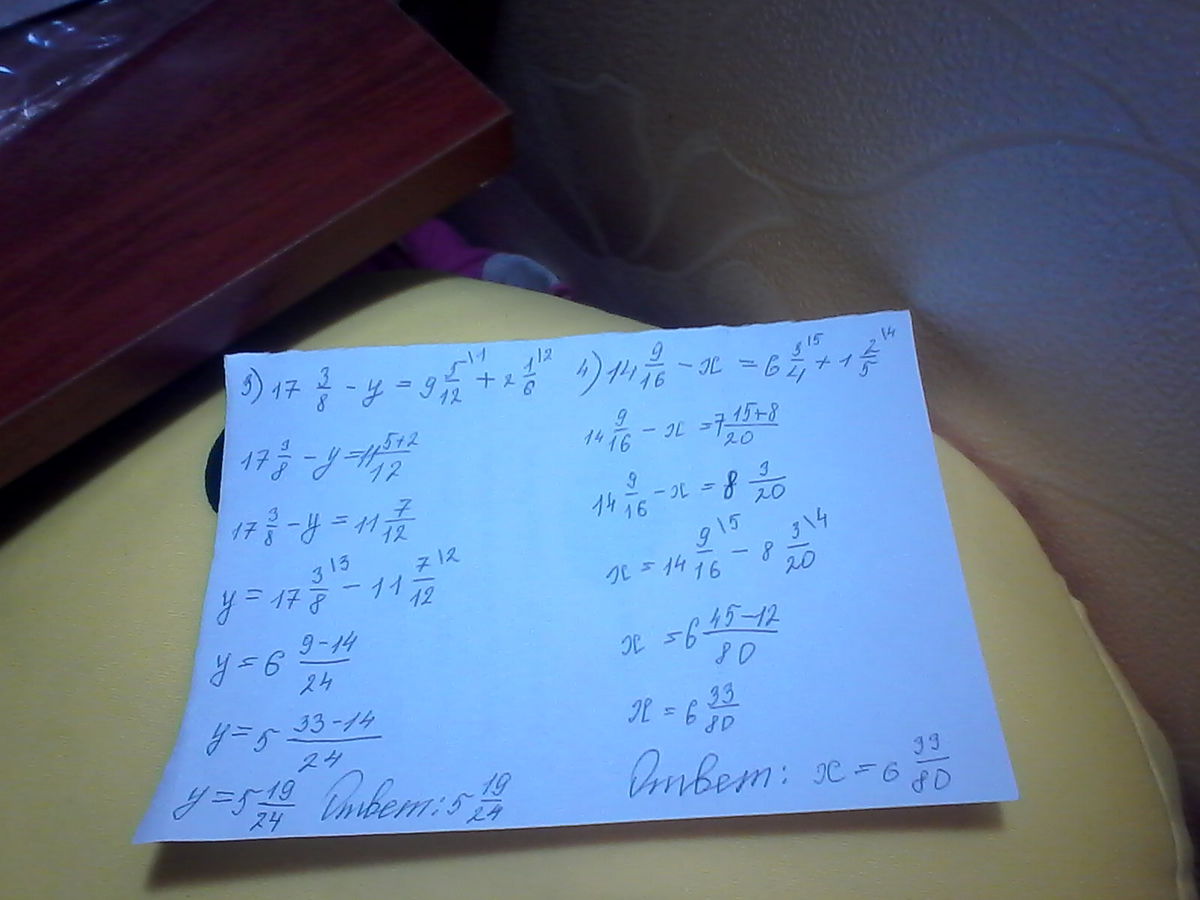 3) 17 3/8 - y = 9 5/12 \1 + 2 1/6 \2
17 3/8 - y = 11 5+2/12
17 3/8 - y = 11 7/12
y = 17 3/8 \3 - 11 7/12 \2
y = 6 9-14/24
y = 5 33-14/24
y = 5 19/24 Ответ: 5 19/24
4) 14 9/16 - x = 6 3/4 \5 + 1 2/5 \4
14 9/16 - x = 7 15+8/20
14 9/16 - x = 8 3/20
x = 14 9/16 \5 - 8 3/20 \4
x = 6 45-12/80
x = 6 33/80
Ответ: x = 6 33/80